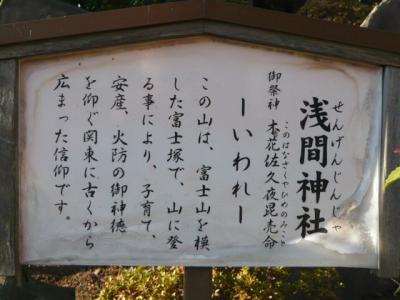 せんげんじんじゃ
浅間神社
このはなさくやひめのみこと
御祭神 木花佐久夜毘売命
ーいわれー
この山は、富士山を模
した富士塚で、山に登
る事により、子育て、
安産、火防の御神徳
を仰ぐ関東に古くから
広まった信仰です。